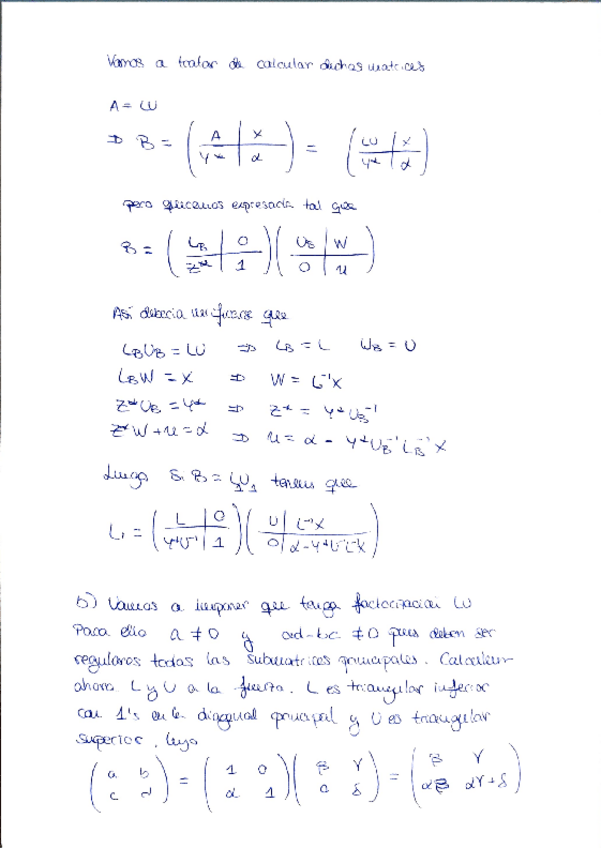 Vamos a tratar de calcular dichas matrices
A = LU
⇒ B = ( A | X / Y* | α ) = ( LU | X / Y* | α )
pero queremos expresarla tal que
B = ( L_B | 0 / Z* | 1 ) ( U_B | W / 0 | u )
Así debería verificarse que
L_B U_B = LU ⇒ L_B = L U_B = U
L_B W = X ⇒ W = L⁻¹X
Z* U_B = Y* ⇒ Z* = Y* U_B⁻¹
Z* W + u = α ⇒ u = α - Y* U_B⁻¹ L_B⁻¹ X
Luego si B = L₁U₁ tenemos que
L₁ = ( L | 0 / Y*U⁻¹ | 1 ) ( U | L⁻¹X / 0 | α - Y*U⁻¹L⁻¹X )
b) Vamos a imponer que tenga factorización LU
Para ello a ≠ 0 y ad - bc ≠ 0 pues deben ser
regulares todas las submatrices principales. Calculemos
ahora L y U a la fuerza. L es triangular inferior
con 1's en la diagonal principal y U es triangular
superior, luego
( a b / c d ) = ( 1 0 / α 1 ) ( β γ / 0 δ ) = ( β γ / αβ αγ + δ )